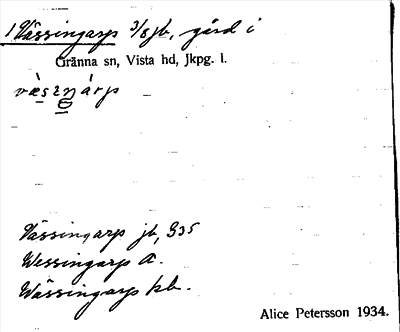 1 Vässingarp 3/8 jb, gård i
Gränna sn, Vista hd, Jkpg. l.
Vässingarp jb,
Wessingarp A.
Wässingarp kb.
Alice Petersson 1934.